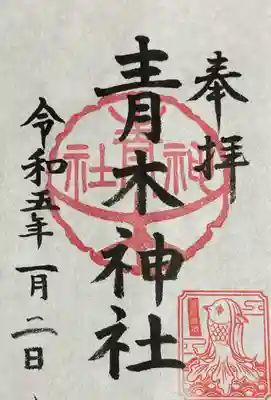 奉拝
青木神社
令和五年一月二日